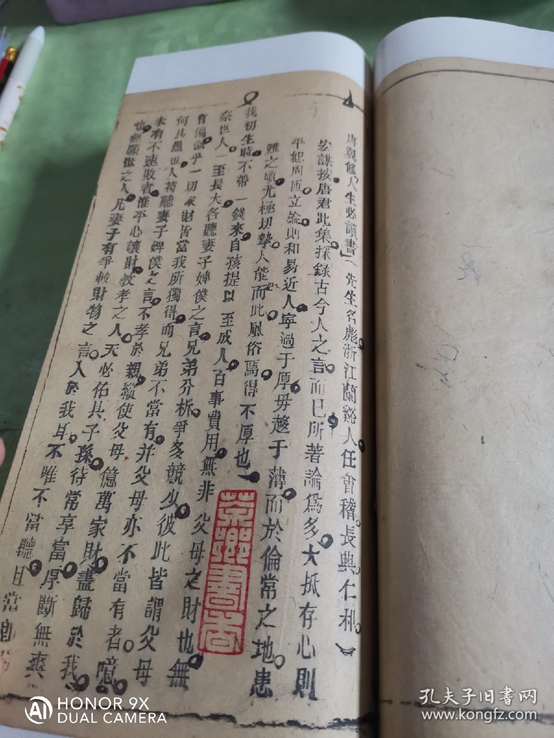 唐翼修人生必讀書（先生名彪浙江蘭谿人任會稽長興仁和
宏謀按唐君此集採錄古今人之言而已所著論為多大抵存心則
平恕周匝立論則和易近人寧過于厚毋趨于薄而於倫常之地患
難之頃尤極切摯人能而此風俗焉得不厚也
我初生時不帶一錢來自孩提以至成人百事費用無非父母之財也無
奈世人一至長大各聽妻子婢僕之言兄弟分析爭多競少彼此皆謂父母
有偏視乎一切家財皆當我所獨得而兄弟不當有并父母亦不當有者噫
何其愚也人苟聽妻子婢僕之言不孝於親縱使父母億萬家財盡歸於我
未有不速敗者誰平心讓財敦孝之人天必佑其子孫待常享富厚斷無爽
也無願世之人凡妻子有爭較財物之言入於我耳不唯不當聽且當
茶鄉書香
HONOR 9X
AI DUAL CAMERA
孔夫子旧书网
www.kongfz.com